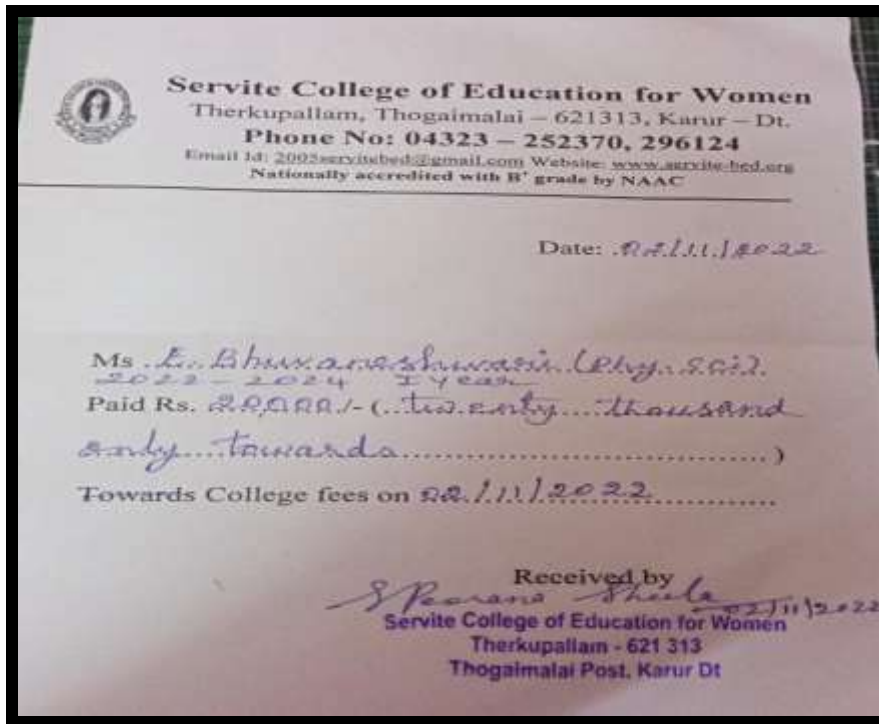 Servite College of Education for Women
Therkupallam, Thogaimalai – 621313, Karur – Dt.
Phone No: 04323 – 252370, 296124
Email Id: 2005servitebed@gmail.com Website: www.servite-bed.org
Nationally accredited with B+ grade by NAAC
Date: 02/11/2022
Ms. E. Bhuvaneshwari (Phy. Sci).
2022-2024 I Year
Paid Rs. 20,000/- (..twenty....thousand
only....towards..................................)
Towards College fees on 02/11/2022................
Received by
02/11/2022
Servite College of Education for Women
Therkupallam - 621 313
Thogaimalai Post, Karur Dt